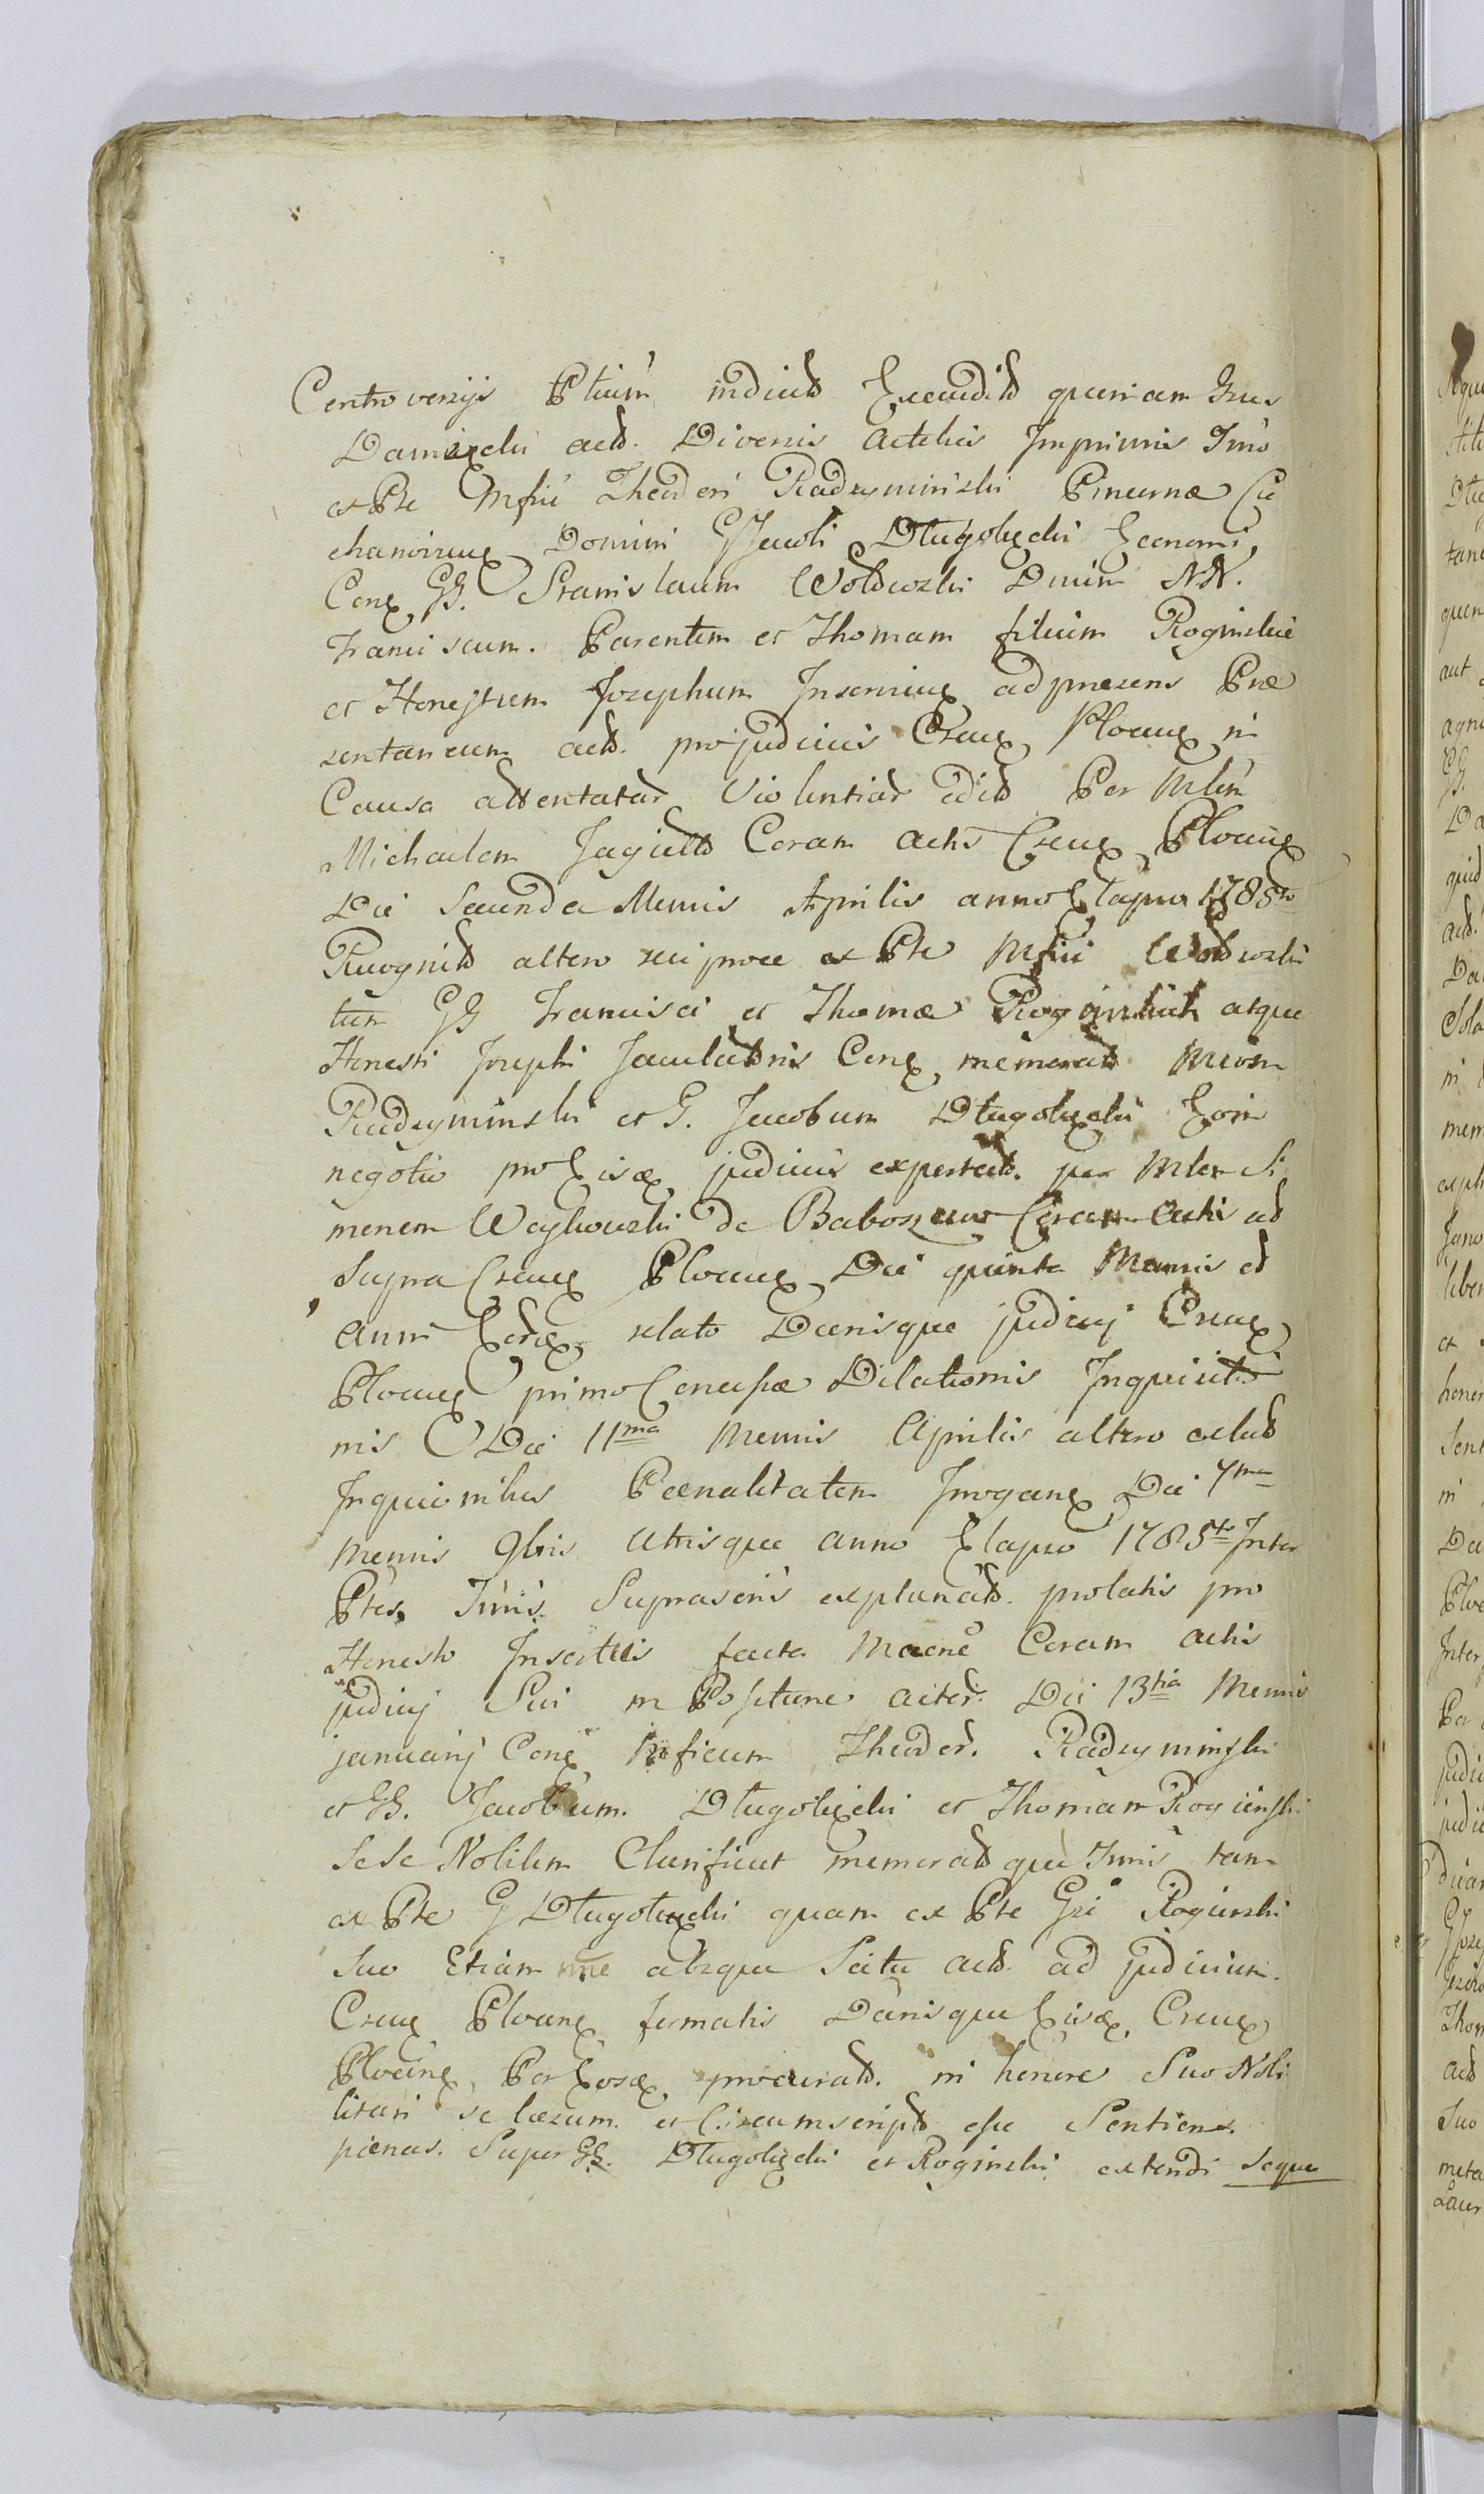 Controversijs Ptium indicto Exaudito quoniam Grus
Damięcki acto. Diversis Actibus Imprimis Imo
ex Pte Mfici Theodori Radzyminski Pincernæ Cie
chanovien Domini G Jacobi Długołęcki Economi,
Con G. Stanislaum Wołowski Dnum NN.
Franciscum. Parentem et Thomam filium Roginskie
et Honestum Josephum Inservien ad præsens Præ
sentaneum acto. pro judiciis Cren Plocen in
Causa attentatar Violentiar edito Per Mlem
Michaelem Jagiełło Coram Actis Cren Plocen
Die Secunda Mensis Aprilis anno Elapso 1785to
Recognito altero reciproce ex Pte Mfici Wołowski
tum GG Francisci et Thomæ Roginskich atque
Honesti Josephi Jaculatoris Con memorato Mcosm
Radzyminski et G. Jacobum Długołęcki Eoim
negotio pro Eisdæ judiciis expertato. per Mlem Si
monem Węglowski de Baboszewo Coram Actis ut
Supra Cren Plocen Die quinta Mensis et
anni Eord relato Decrisque judicij Cren
Plocen primo Concessæ Dilationis Inquisitio
nis Die 11ma Mensis Aprilis altero exclud
Inquisionibus Poenalitatem Irrogan Die 7ma
Mensis 9bris Utrisque anno Elapso 1785to Inter
Ptes Juris Suprascriis explanato. prolatis pro
Honesto facta Coram Actis
judicij Sui in Positione Die 13tia Mensis
januarij Con Mficum Theodor. Radzyminski
et GG. Jacobum. Długołęcki et Thomam Roginski
Sese Nobilem Clarificat memorato que Juris tam
ex Pte G Długołęcki quam ex Pte Gsi Roginski
Suo Etiam nne absque Scitu acto. ad judicium.
Cren Plocen formatis Danisque Eisdæ Cren
Plocen, Per Eosd procurato. in honore Suo Nobi
litari se læsum. et Circumscripto esse Sentiens.
pænas. Super GG. Długołęcki et Roginski extendi seque